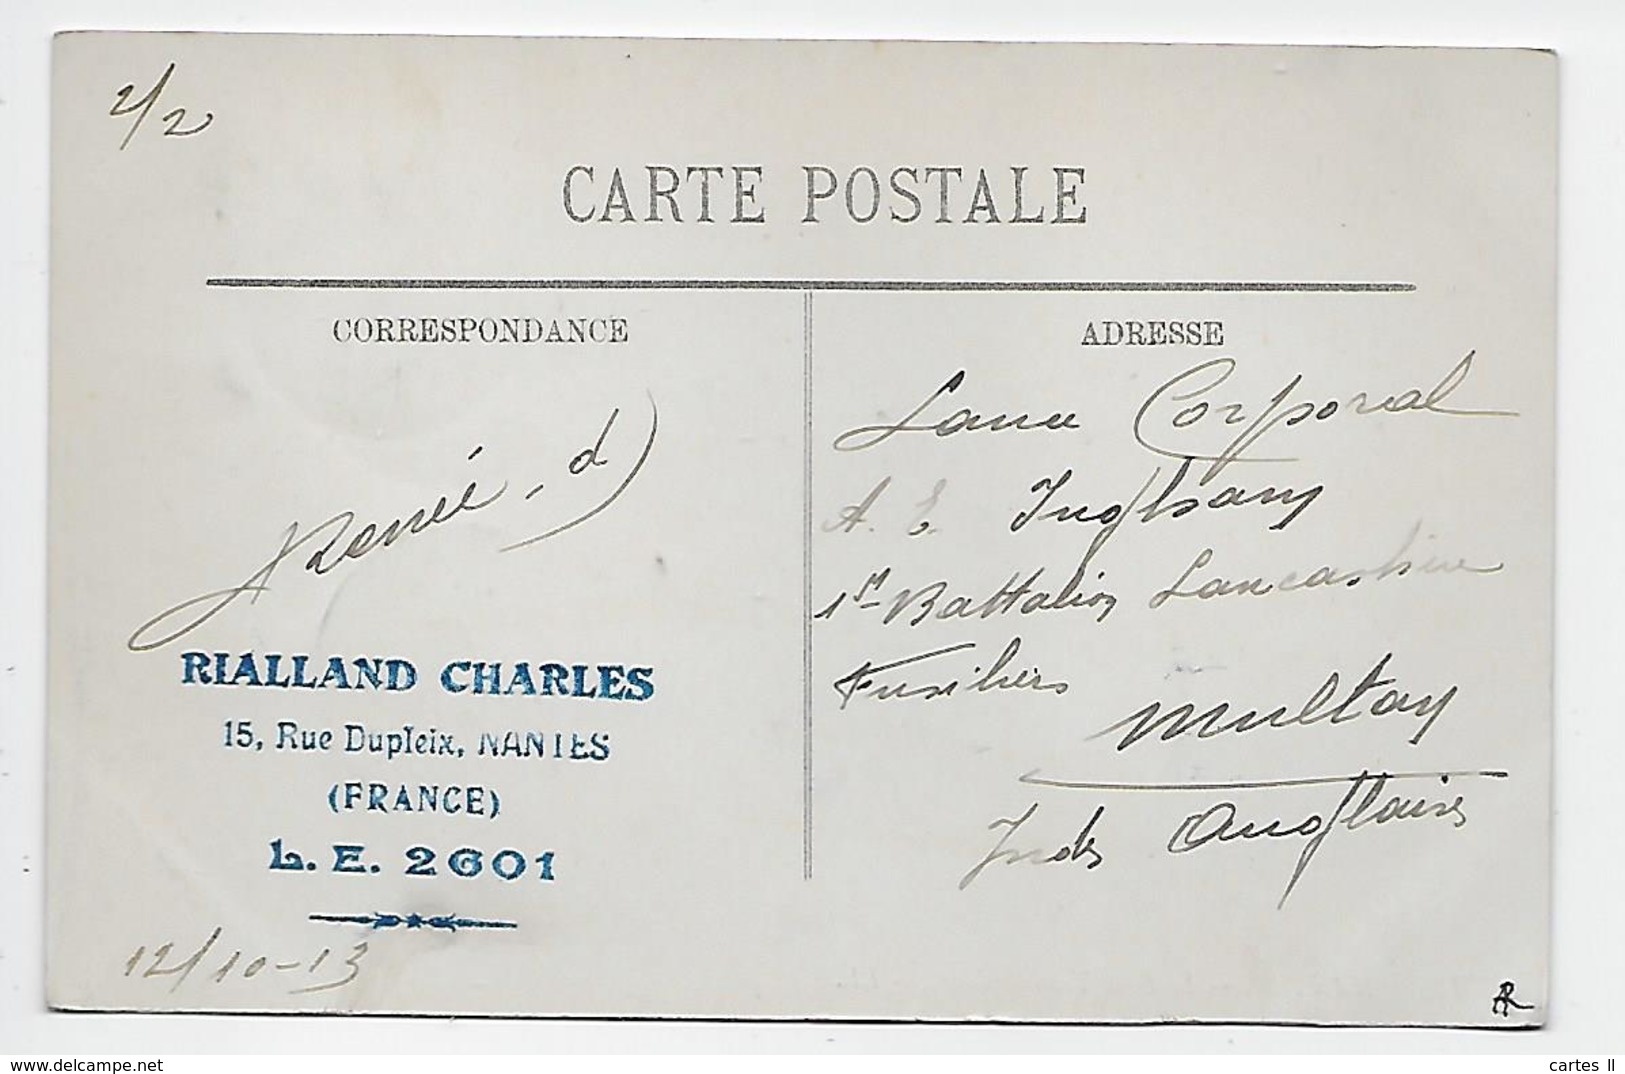 2/2
CARTE POSTALE
CORRESPONDANCE
ADRESSE
RIALLAND CHARLES
15, Rue Dupleix, NANTES
(FRANCE)
L. E. 2601
12/10-13
Lance Corporal
A. E.
1st Battalion Lancashire
Fusiliers
Multan
Indes Anglaises
cartes ll